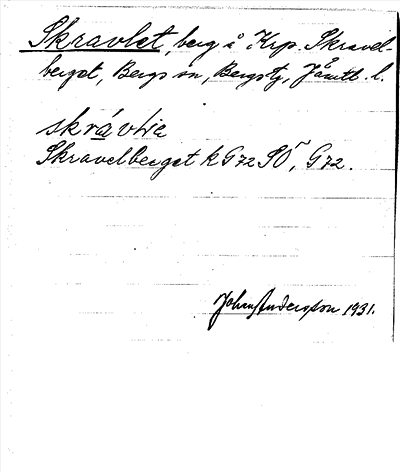 Skravlet, berg å Krp. Skravel-
berget, Bergs sn, Bergs tg, Jämtl. l.
skrávlɩe
Skravelberget k G72 SO, G72.
John Andersson 1931.